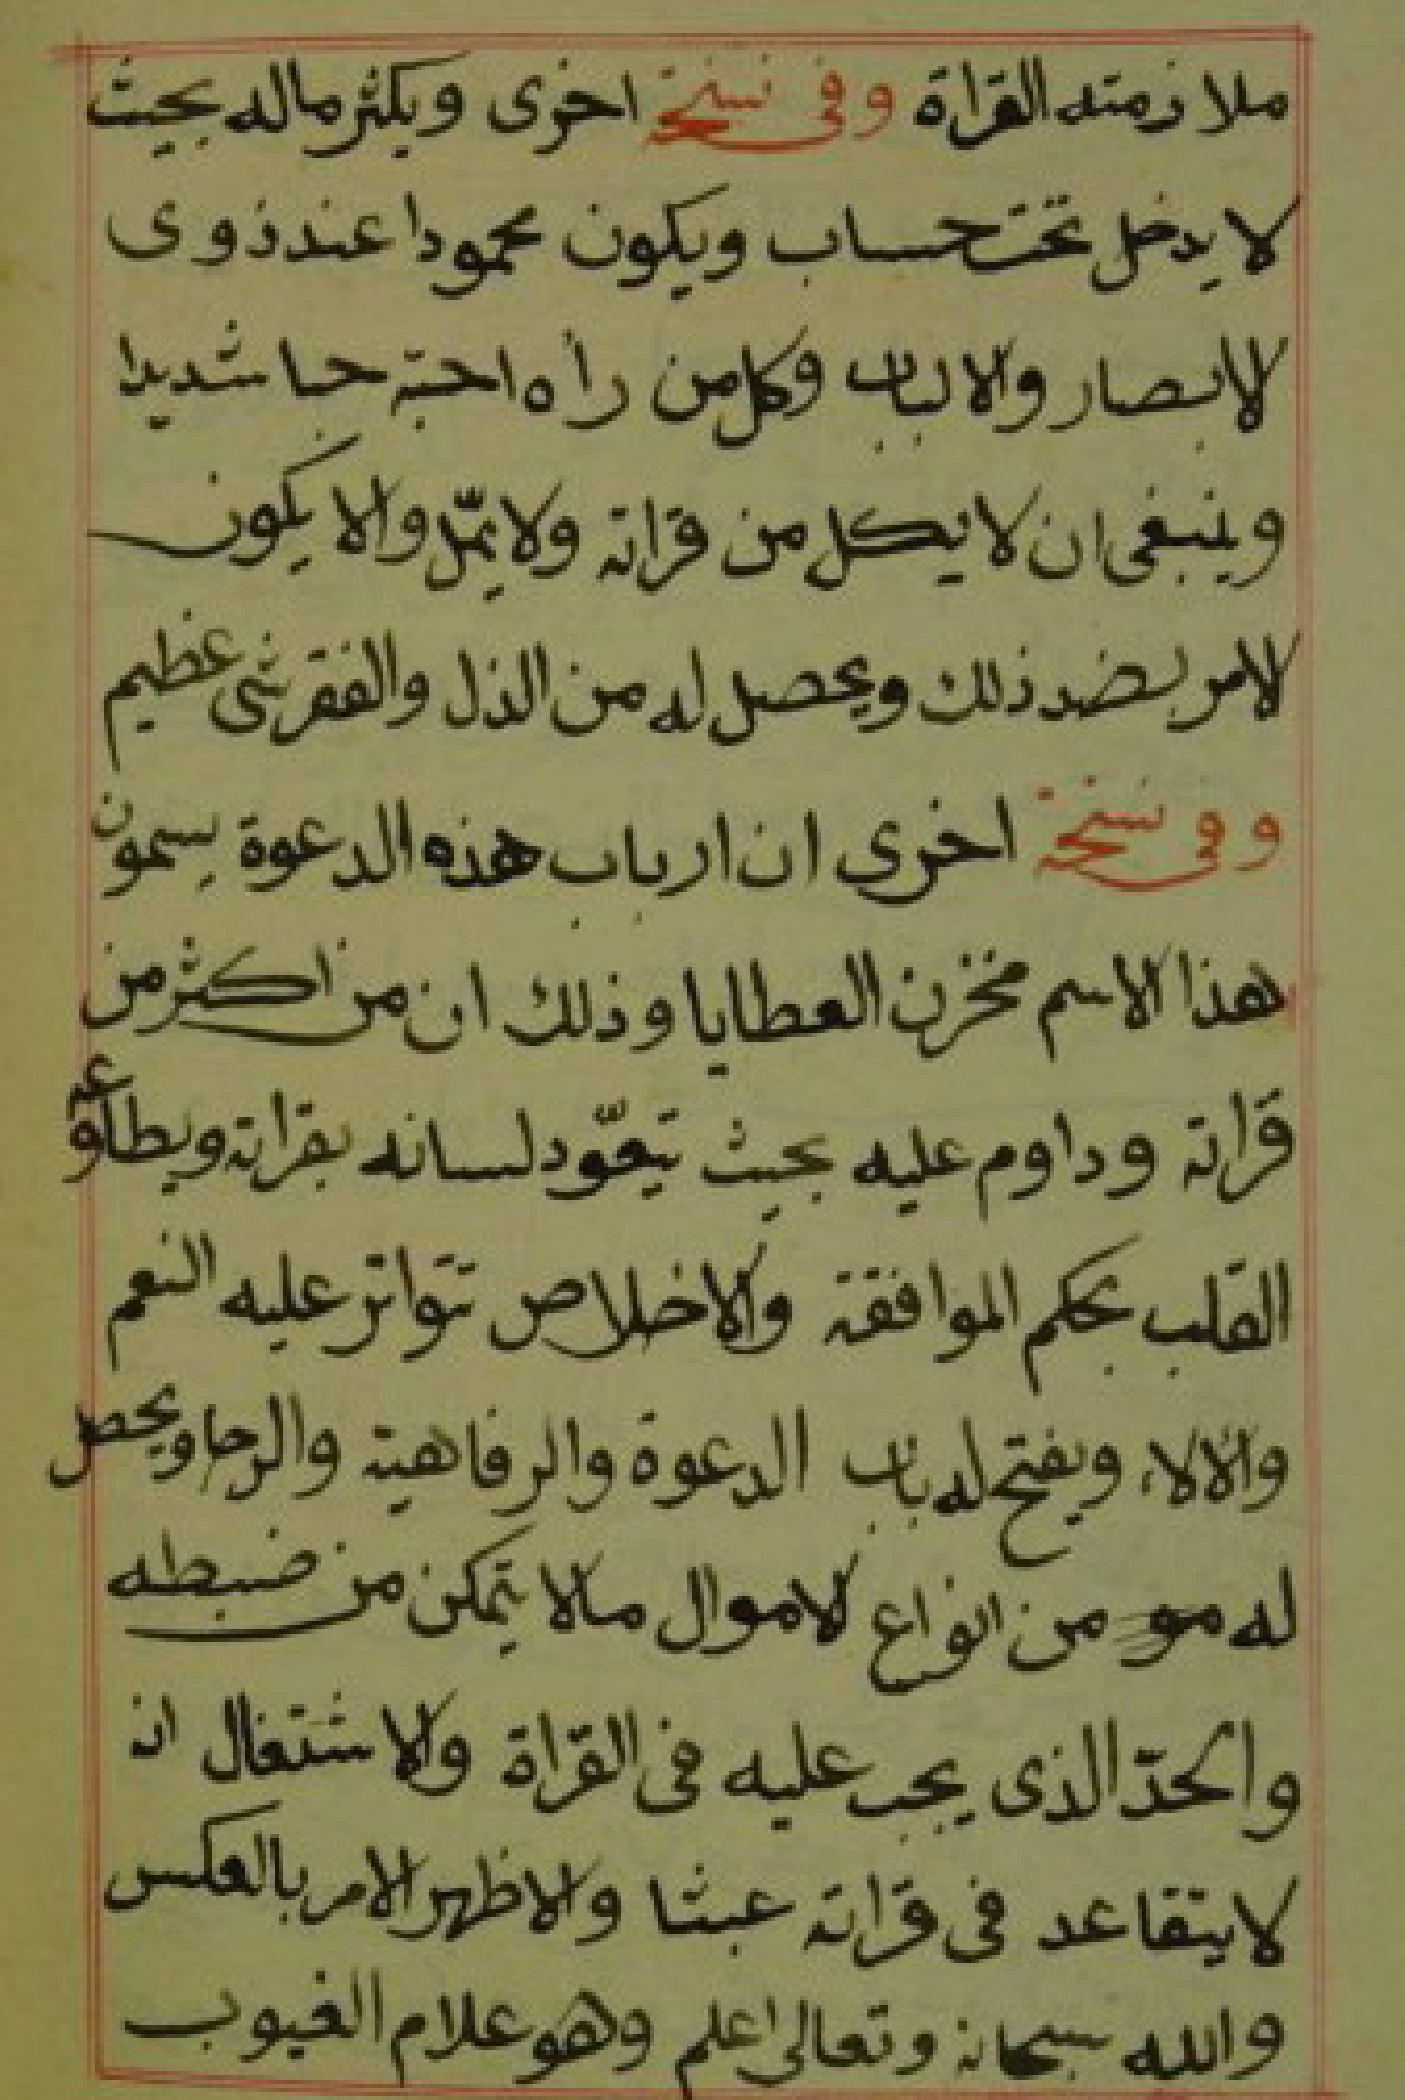 ملازمته القراة وفى نسخة اخرى ويكثر ماله بحيث
لا يدخل تحت حساب ويكون محمودا عند ذوى
لابصار والالباب وكل من رأه احبه حبا شديدا
وينبغى ان لا يكل من قراته ولا يمّل والا يكون
لامر بضد ذلك ويحصل له من الذل والفقر شى عظيم
وفى نسخة اخرى ان ارباب هذه الدعوة يسمون
هذا الاسم مخزن العطايا وذلك ان من اكثر من
قراته وداوم عليه بحيث تيعّود لسانه بقراته ويطاوعه
القلب بحكم الموافقة والاخلاص تتواتر عليه النعم
والالاء ويفتح له باب الدعوة والرفاهية والرجا ويحصل
له من انواع لاموال مالا يتمكن من ضبطه
والحدّ الذى يجب عليه فى القراة والاشتغال انه
لا يتقاعد فى قراته عبثا والا ظهر الامر بالعكس
والله سبحانه وتعالى اعلم وهو علام الغيوب